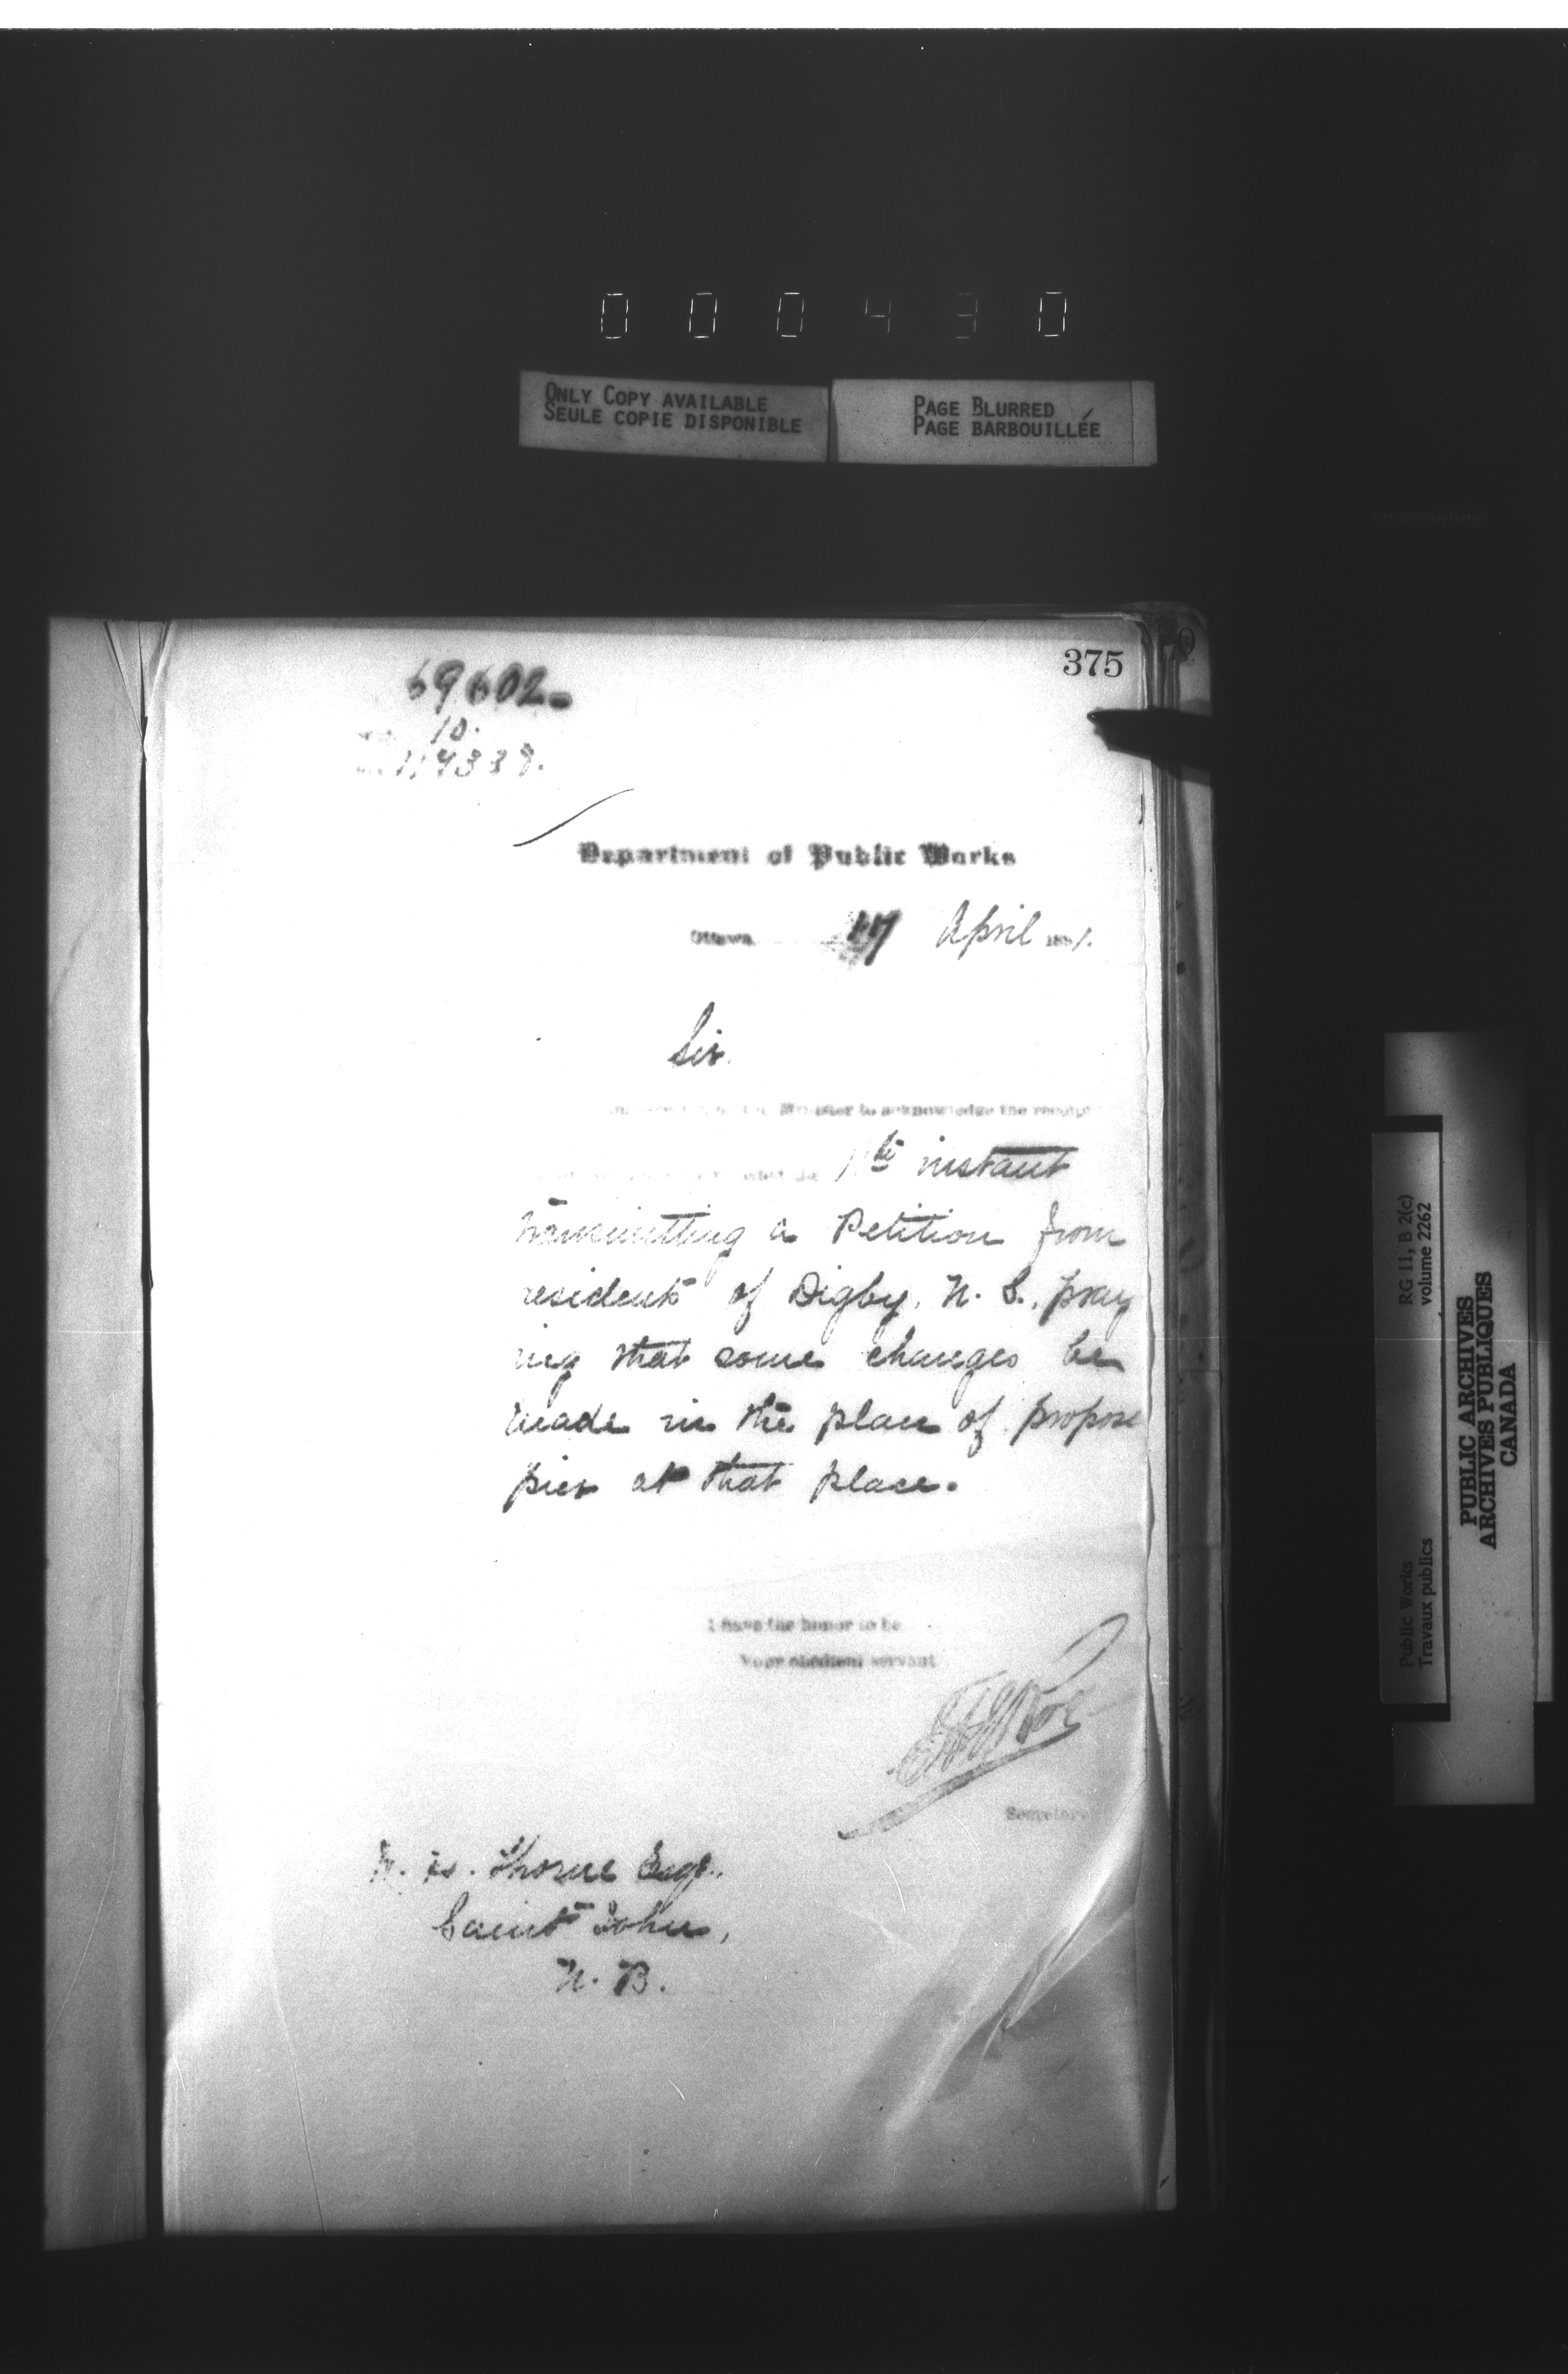 000430
ONLY COPY AVAILABLE
SEULE COPIE DISPONIBLE
PAGE BLURRED
PAGE BARBOUILLÉE
375
69602
10.
Department of Public Works
Ottawa April 1891.
Sir.
Minister to acknowledge the receipt
instant
transmitting a Petition from
residents of Digby, N. S., pray
ing that some changes be
made in the plan of propose
pier at that place.
I have the honor to be
Your obedient servant
Secretary
W. H. Thorne Esqr.,
Saint John,
N. B.
Public Works
Travaux publics
RG 11, B 2(c)
volume 2262
PUBLIC ARCHIVES
ARCHIVES PUBLIQUES
CANADA